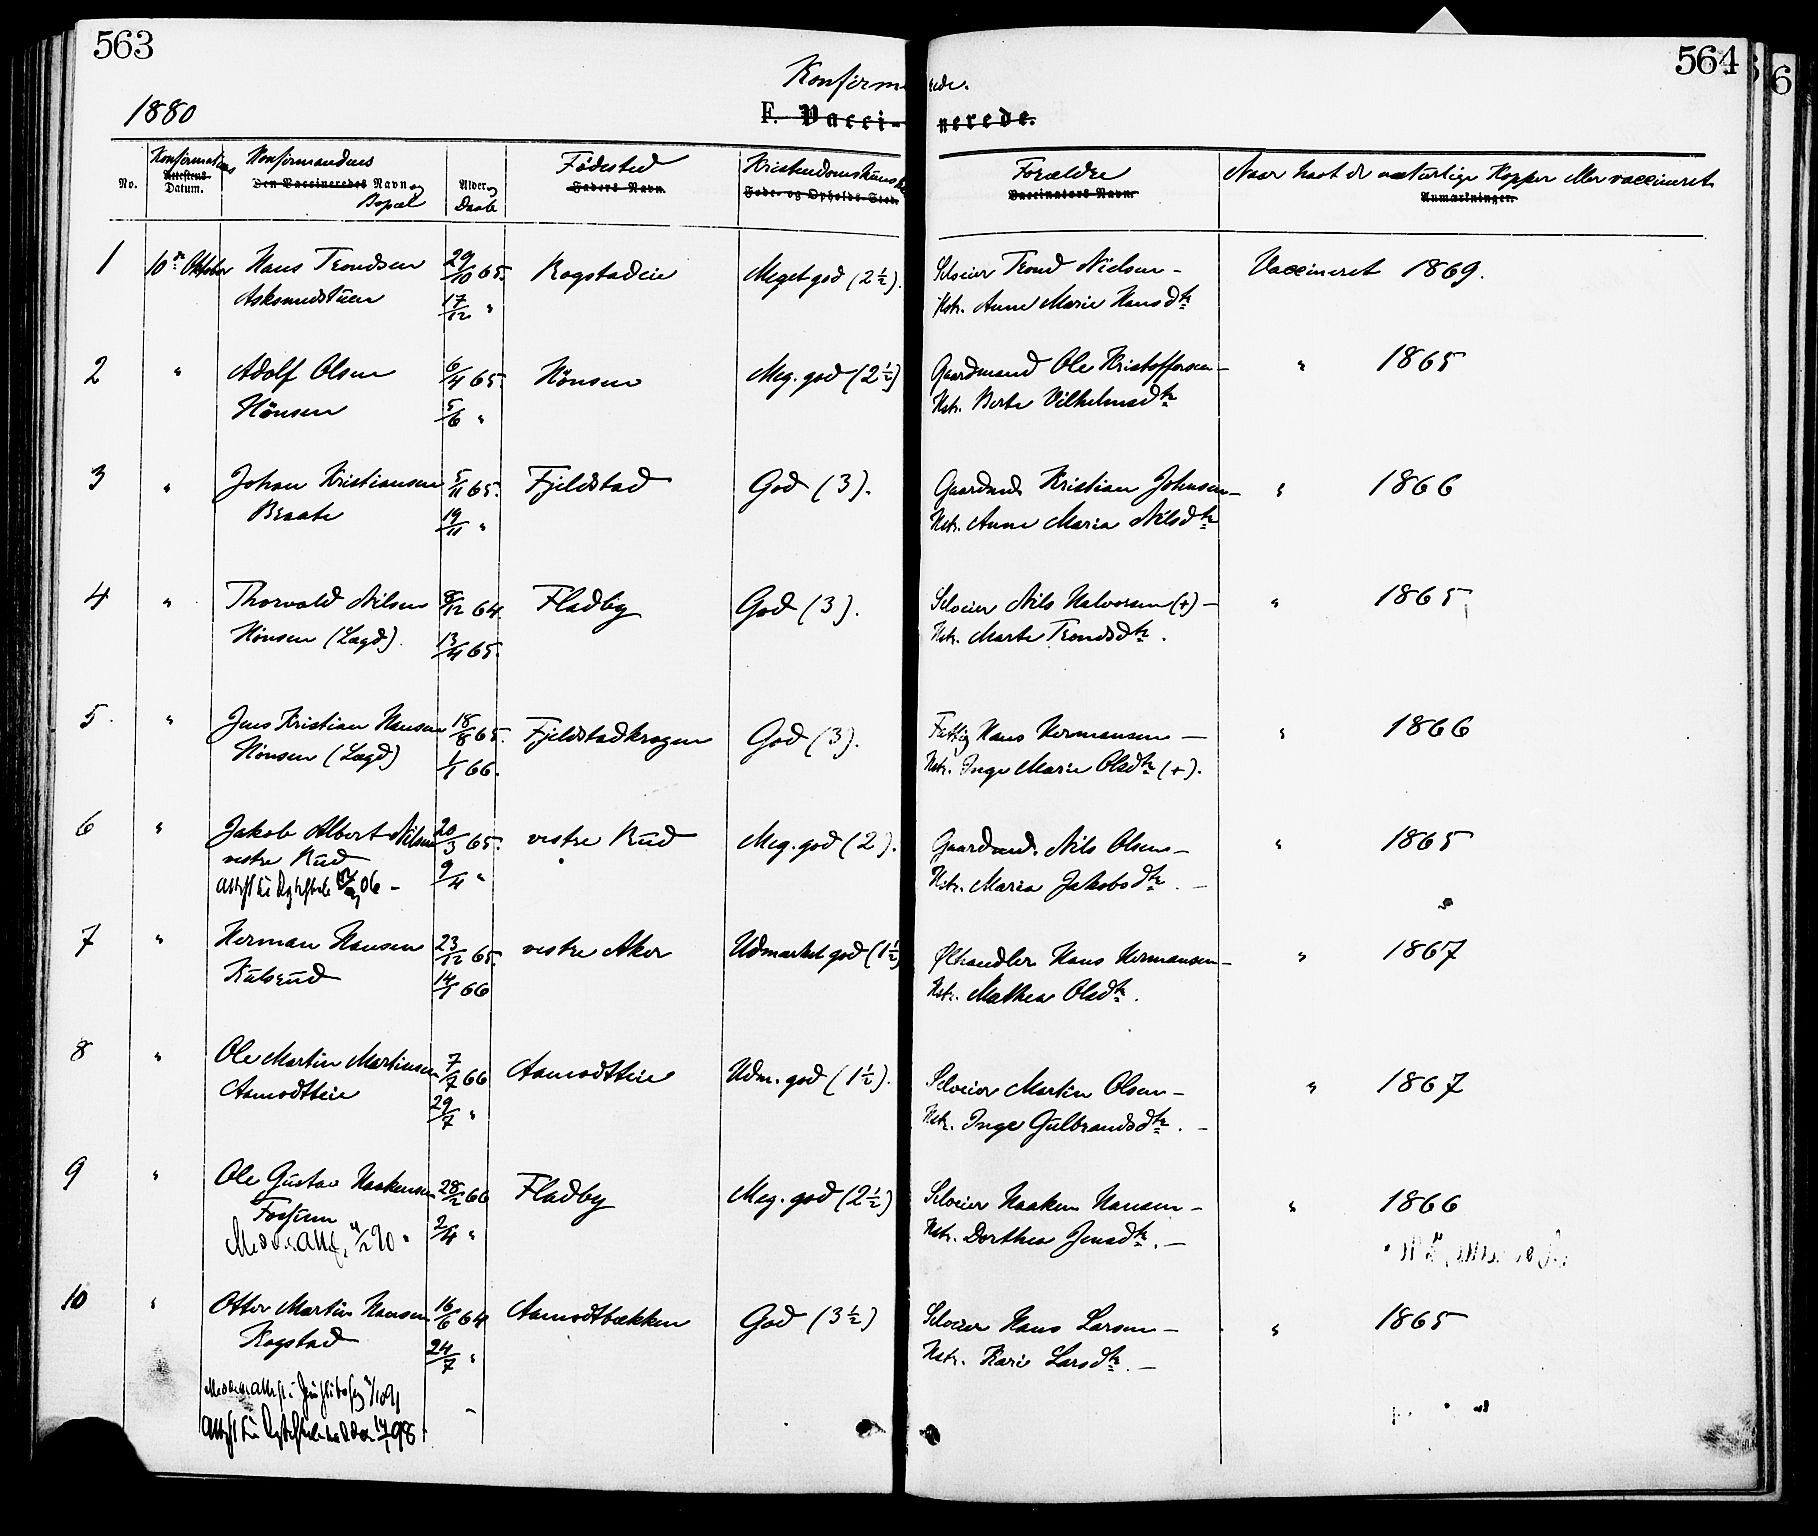 563
564
6
Konfirmerede.
1880
F. Vaccinerede.
No.
Konfirmations
Attestens
Datum.
Konfirmandens
Den Vaccineredes Navn og
Bopæl
Alder og
Daab
Fødested
Faders Navn.
Kristendomskunskab
Føde- og Opholds-Sted.
Forældre
Vaccinators Navn.
Naar havt de naturlige Kopper eller vaccineret
Anmærkninger.
1 10de Oktober Hans Trondsen 29/10 65. Rogstadeie Meget god (2½). Selveier Trond Nielsen - Vaccineret 1869.
17/12 " Kstr. Anne Marie Hansdtr
2 " Adolf Olsen 6/4 65. Hönsen Meg. god (2½) Gaardmand Ole Kristoffersen - " 1865
Hönsen 5/6 " Kstr. Berte Vilhelmsdtr
3 " Johan Kristiansen 5/11 65. Fjeldstad God (3). Gaardmd. Kristian Johnsen - " 1866
Braate 19/11 " Kstr. Anne Maria Nilsdtr
4 " Thorvald Nilsen 8/12 64. Fladby God (3). Selveier Nils Halvorsen (+) - " 1865
Hönsen (Lægd). 13/4 65. Kstr. Marte Trondsdtr.
5. " Jens Kristian Hansen 18/8 65. Fjeldstadkrogen God (3). Fattig Hans Hermansen - " 1866
Hönsen (Lægd) 1/1 66. Kstr. Inge Marie Olsdtr (+).
6 " Jakob Albert Nilsen 20/3 65. vestre Rud Meg. god (2). Gaardmd. Nils Olsen - " 1865
vestre Rud 9/4 " Kstr. Maria Jakobsdtr. -
06 -
7 " Herman Hansen 23/12 65. vestre Aker Udmærket god (1½) Ølhandler Hans Hermansen - " 1867
Kulsrud 14/1 66 Kstr. Mathea Olsdtr.
8 " Ole Martin Martinsen 7/7 66 Aamodteie Udm. god (1½). Selveier Martin Olsen - " 1867
Aamodteie 29/7 " Kstr. Inge Gulbrandsdtr. -
9 " Ole Gustav Haakensen 28/2 66 Fladby Meg. god (2½) Selveier Haaken Hansen - " 1866
Fossum 2/4 " Kstr. Dorthea Jensdtr. -
90
10 " Otter Martin Hansen 16/6 64 Aamodtbækken God (3½) Selveier Hans Larsen - " 1865
Rogstad 24/7 " Kstr. Kari Larsdtr. -
98